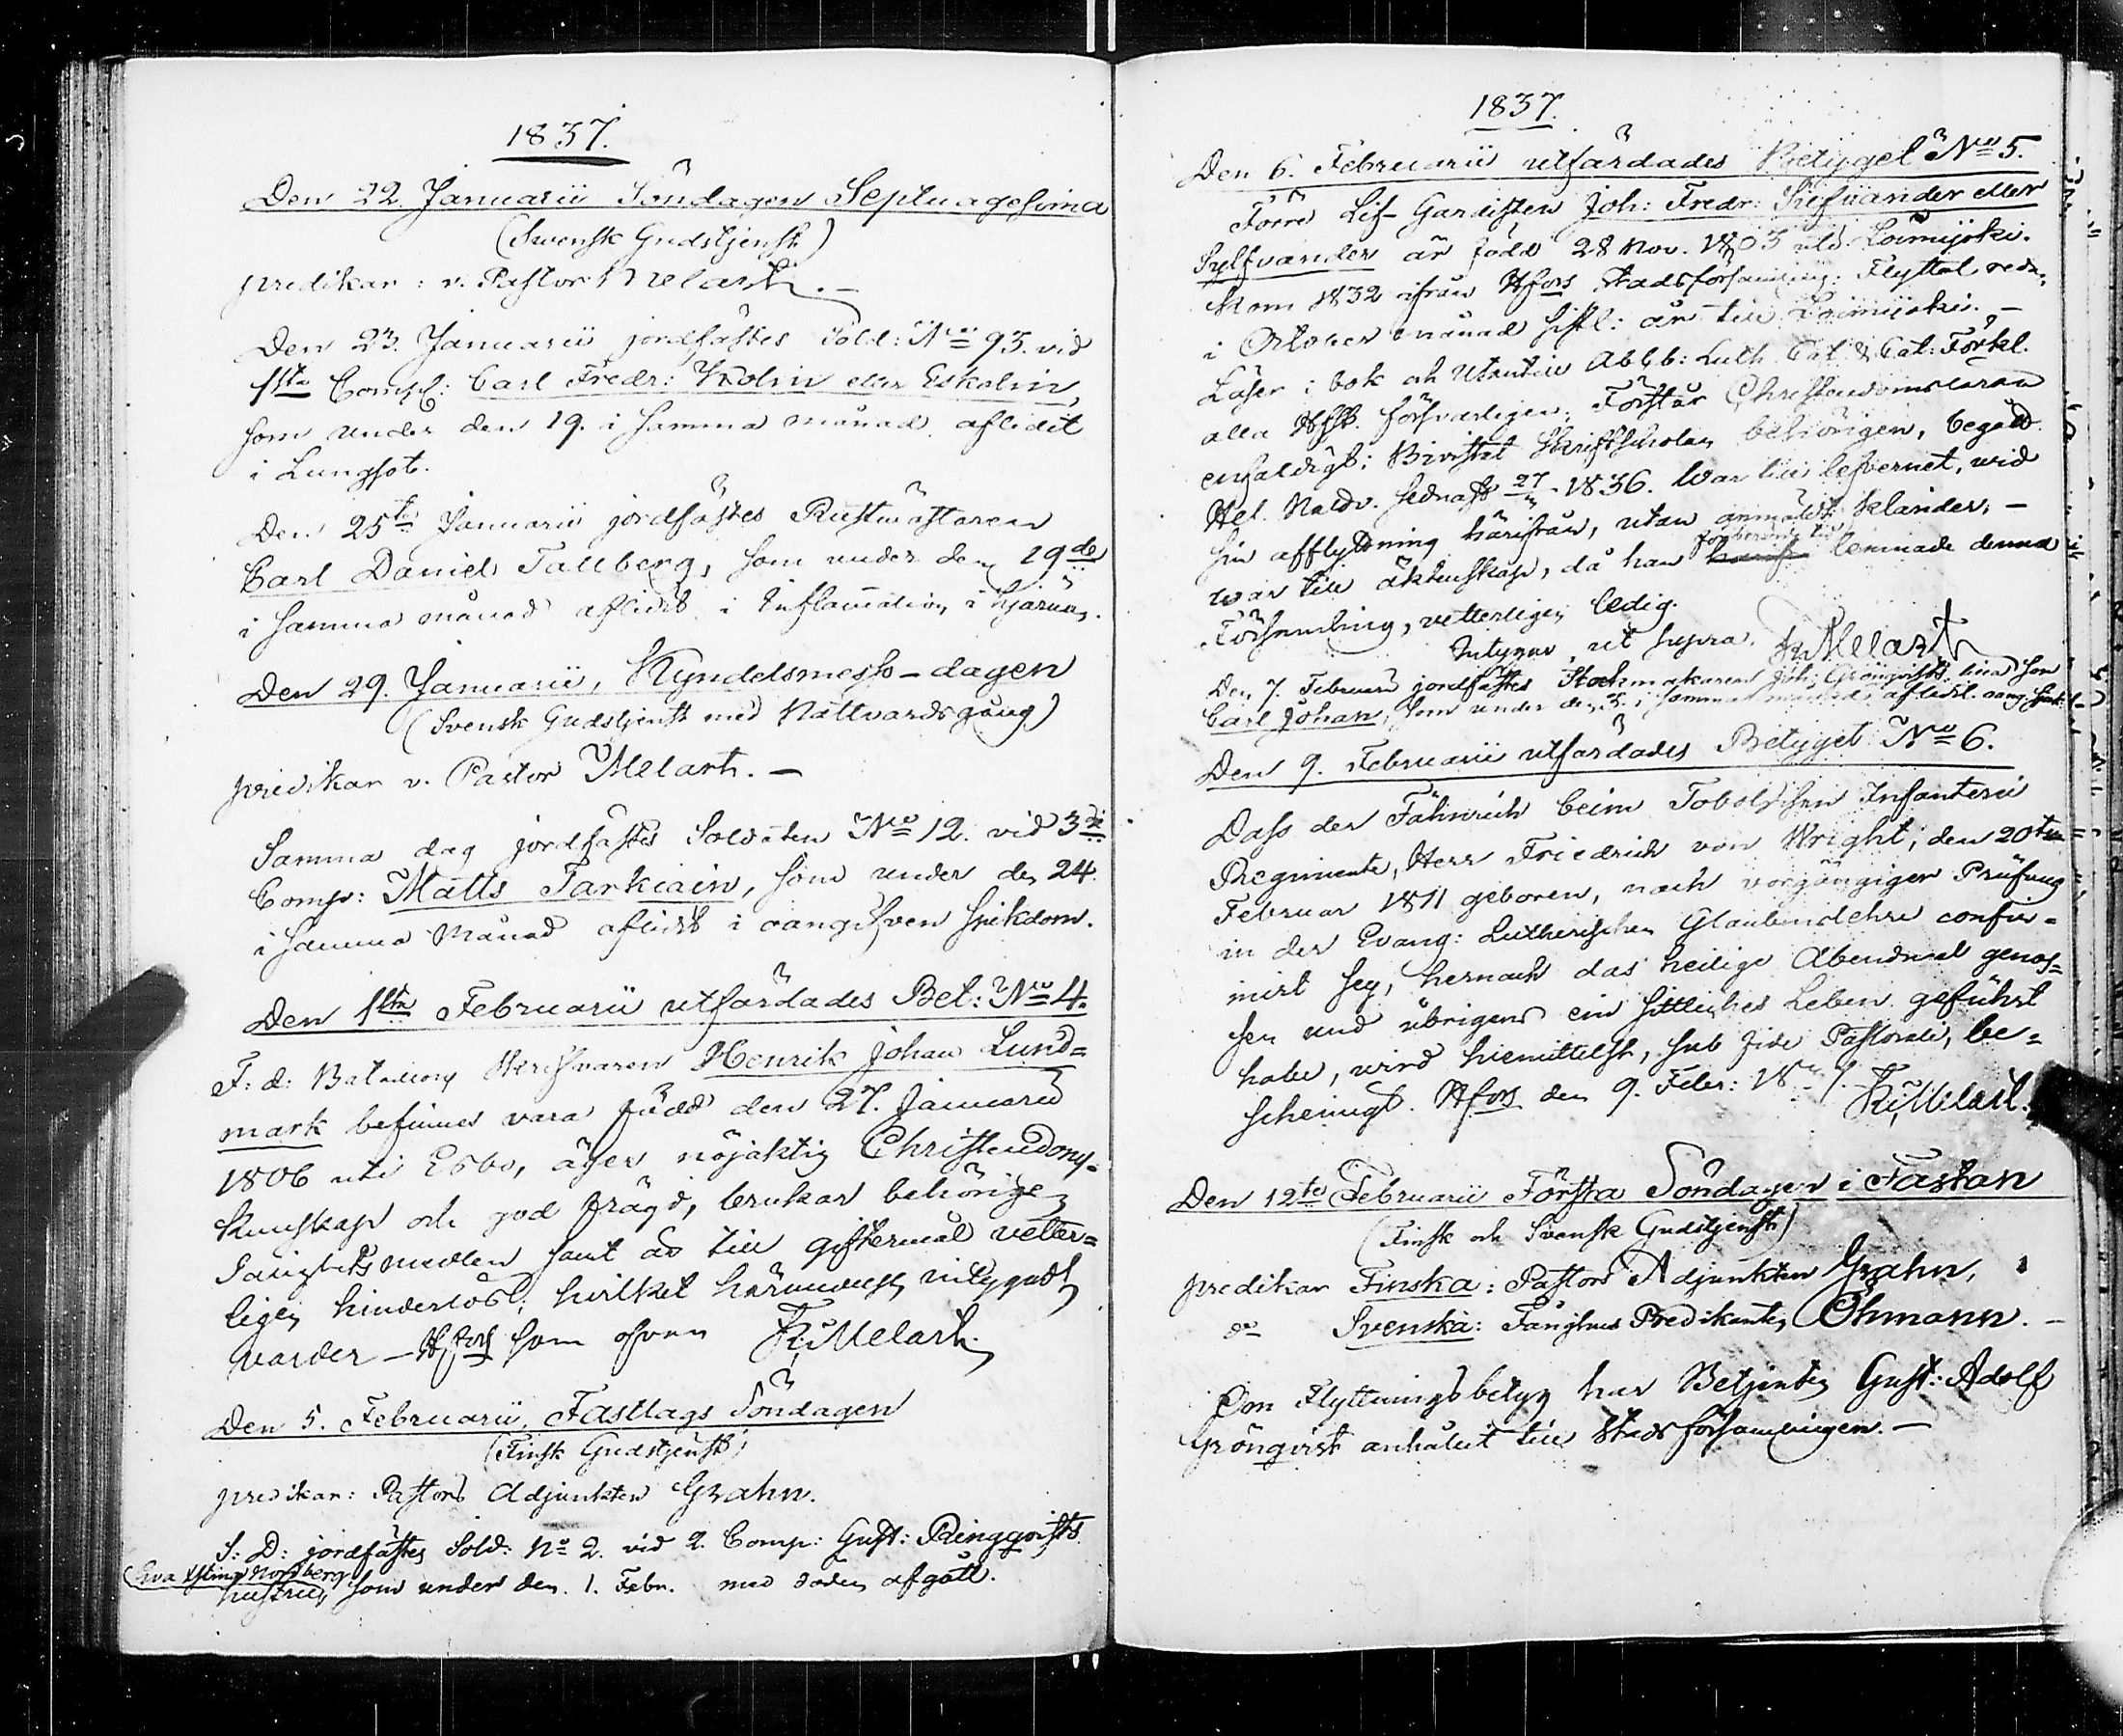 1837.
Den 22. Januarii Söndagen Septuagesima
(Svensk Gudstjenst)
predikar: v. Pastor Melart. –
Den 23. Januarii jordfästes Sold: No 93. vid
1sta Comp: Carl Fredr: Ekolin eller Eskolin,
som under den 19. i samma månad aflidit
i Lungsot.
Den 25te Januarii jordfästes Rustmästaren
Carl Daniel Tallberg, som under den 19de
i samma månad aflidit i Inflamation i hjärnan.
Den 29. Januarii, Kyndelsmesso-dagen
(Svensk Gudstjenst med Nattvardsgång)
predikar v. Pastor Melart. –
Samma dag jordfästes Soldaten No 12. vid 3dje
Comp: Matts Tarkiain, som under den 24.
i samma månad aflidit i oangifven sjukdom.
Den 1sta Februarii utfärdades Bet: No 4.
F: d: Bataillons Skrifvaren Henrik Johan Lund=
mark befinnes vara född den 27. Januarii
1806 uti Esbo, äger nöjaktig Christendoms=
kunskap och god frägd, brukar behörigen
Salighetsmedlen samt är till giftermål vetter=
ligen hinderlös; hvilket härmedelst intygadt
varder – Hfors som ofvan Fr: Melart.
Den 5. Februarii, Fastlags Söndagen
(Finsk Gudstjenst)
predikar: Pastors Adjunkten Grahn.
S: D: jordfästes Sold: No 2. vid 2. Comp: Gust: Ringqvists
(Eva Nordberg
hustru, som under den 1. Febr. med döden afgått.
1837.
Den 6. Februarii utfärdades Betyget No 5.
Förre Lif-Gardisten Joh: Fredr: eller
Sylfvander är född 28 Nov. 1803 uti Loimijoki.
Kom 1832 ifrån Hfors Stadsförsamling. Flyttat redn.
i October månad sistl: år till Loimijoki. –
Läser i bok och utantill Abc b: Luth. Cat. & Cat: Förkl.
alla Hfst. försvarligen. Förstår Christendomsläran
enfaldigt; Bivistat Skriftskolan behörigen, begått
H. Nattv. sednast 27 1836. War till lefvernet, vid
sin afflyttning härifrån, utan anmäldt klander, –
war till äktenskap, då han förberörde tid lemnade denna
Församling, vetterligen ledig.
Intygar, ut supra. Fr: Melart
Den 7. Februarii jordfästes Stockmakaren Joh: Grönqvists son
Carl Johan, som under den 3. i samma månad aflidit. oang. sjukd.
Den 9. Februarii utfärdades Betyget No 6.
Dass der Fähnrich beim Tobolskischen Infanterie
Regimente, Herr Friedrich von Wright, den 20ten
Februar 1811 geboren, nach vorgängiger Prüfung
in der Evang: Lutherischen Glaubenslehre confir=
mirt sey, hernach das heilige Abendmal genos=
sen und übrigens ein sittliches Leben geführt
habe, wird hiemittelst, sub fide Pastorali, be=
scheinigt. Hfors den 9. Febr: Fr: Melart.
Den 12te Februarii Första Söndagen i Fastan
(Finsk och Svensk Gudstjenst)
predikar Finska: Pastors Adjunkten Grahn,
do Svenska: Fånghus Predikanten Öhmann. –
Om Flyttningsbetyg har Betjenten Gust: Adolf
Grönqvist anhållit till Stadsförsamlingen. –